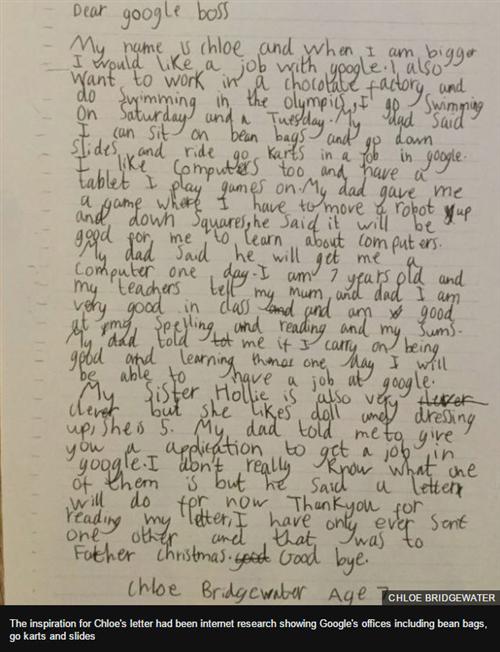 Dear google boss
My name is chloe and when I am bigger
I would like a job with google. I also
want to work in a chocolate factory and
do swimming in the olympics, I go swimming
On Saturday and a Tuesday. My dad said
I can sit on bean bags and go down
slides and ride go karts in a job in google.
I like computers too and have a
tablet I play games on. My dad gave me
a game where I have to move a robot up
and down squares, he said it will be
good for me to learn about computers.
My dad said he will get me a
computer one day. I am 7 years old and
my teachers tell my mum and dad I am
very good in class and and am good
at my spelling and reading and my sums.
My dad told me if I carry on being
good and learning one day I will
be able to have a job at google.
My sister Hollie is also very
clever but she likes doll and dressing
up, she is 5. My dad told me to give
you a application to get a job in
google. I don't really know what one
of them is but he said a letter
will do for now Thankyou for
reading my letter, I have only ever sent
one other and that was to
Father christmas. Good bye.
Chloe Bridgewater Age 7
CHLOE BRIDGEWATER
The inspiration for Chloe's letter had been internet research showing Google's offices including bean bags,
go karts and slides